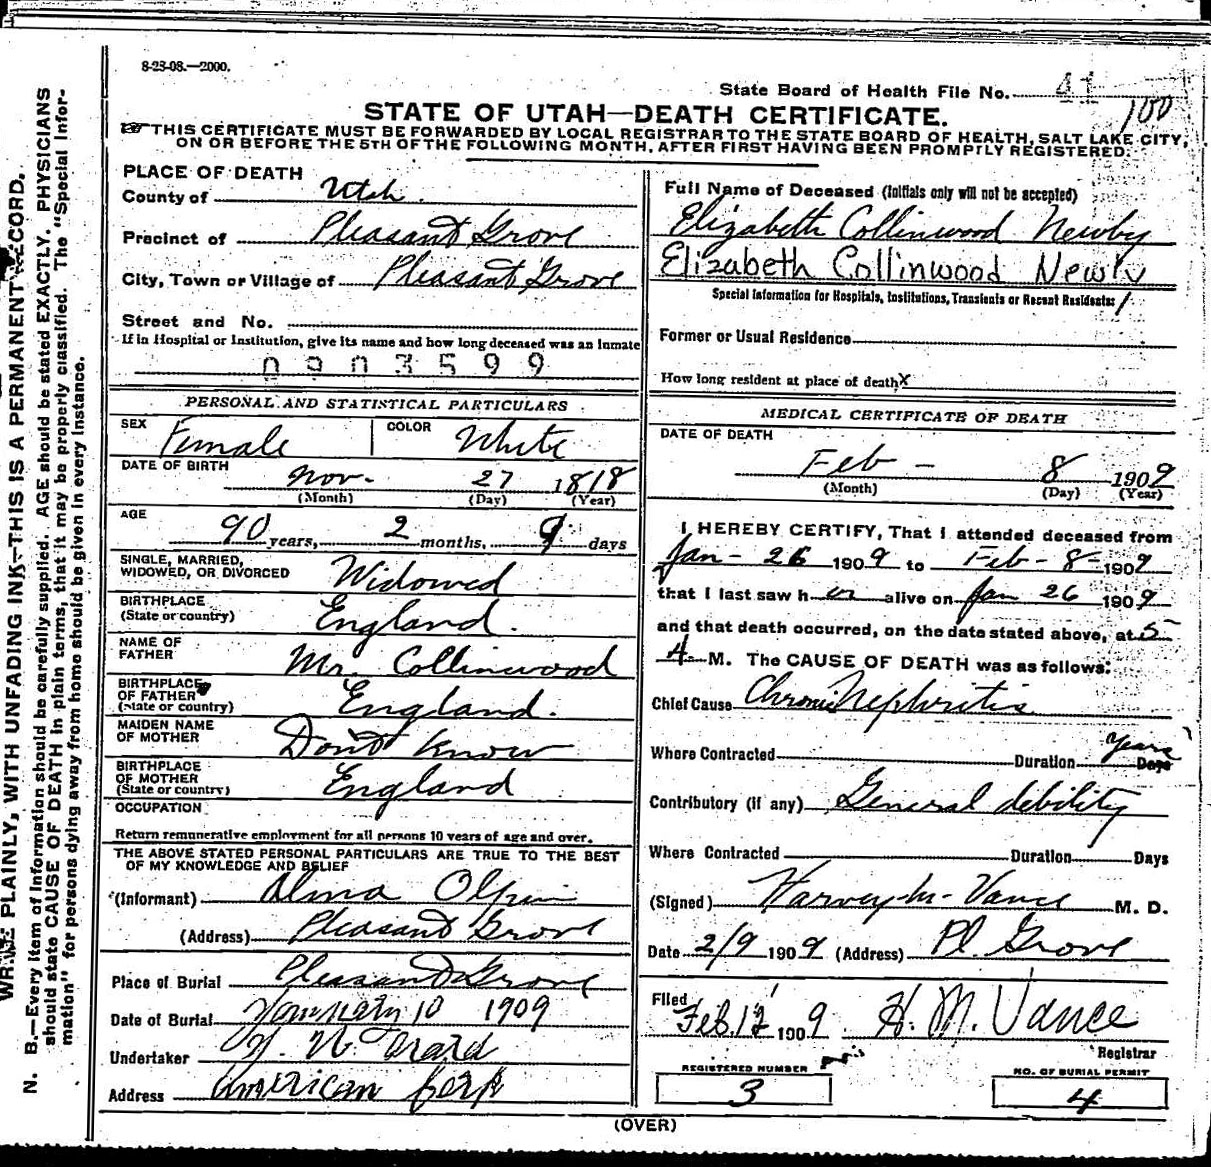 8-23-08.—2000.
State Board of Health File No. 41
100
STATE OF UTAH—DEATH CERTIFICATE.
☞ THIS CERTIFICATE MUST BE FORWARDED BY LOCAL REGISTRAR TO THE STATE BOARD OF HEALTH, SALT LAKE CITY,
ON OR BEFORE THE 5TH OF THE FOLLOWING MONTH, AFTER FIRST HAVING BEEN PROMPTLY REGISTERED.
PLACE OF DEATH
County of Utah.
Precinct of Pleasant Grove
City, Town or Village of Pleasant Grove
Street and No.
If in Hospital or Institution, give its name and how long deceased was an inmate
0903599
PERSONAL AND STATISTICAL PARTICULARS
SEX Female COLOR White
DATE OF BIRTH Nov. 27 1818
(Month) (Day) (Year)
AGE 90 years, 2 months, 9 days
SINGLE, MARRIED,
WIDOWED, OR DIVORCED Widowed
BIRTHPLACE
(State or country) England.
NAME OF
FATHER Mr. Collinwood
BIRTHPLACE
OF FATHER
(State or country) England.
MAIDEN NAME
OF MOTHER Don't Know
BIRTHPLACE
OF MOTHER
(State or country) England
OCCUPATION
Return remunerative employment for all persons 10 years of age and over.
THE ABOVE STATED PERSONAL PARTICULARS ARE TRUE TO THE BEST
OF MY KNOWLEDGE AND BELIEF
(Informant) Alma Olpin
(Address) Pleasant Grove
Place of Burial Pleasant Grove
Date of Burial 10 1909
Undertaker
Address American Fork
Full Name of Deceased (Initials only will not be accepted)
Elizabeth Collinwood Newby
Elizabeth Collinwood Newby
Special Information for Hospitals, Institutions, Transients or Recent Residents:
Former or Usual Residence
How long resident at place of death X
MEDICAL CERTIFICATE OF DEATH
DATE OF DEATH
Feb - 8 1909
(Month) (Day) (Year)
I HEREBY CERTIFY, That I attended deceased from
Jan - 26 1909 to Feb - 8 - 1909
that I last saw h er alive on Jan 26 1909
and that death occurred, on the date stated above, at 5
A. M. The CAUSE OF DEATH was as follows:
Chief Cause Chronic Nephritis
Where Contracted Duration Years Days
Contributory (if any) General debility
Where Contracted Duration Days
(Signed) Harvey M- Vance M. D.
Date 2/9 1909 (Address) Pl. Grove
Filed
Feb. 12 1909 H. M. Vance
Registrar
REGISTERED NUMBER
3
NO. OF BURIAL PERMIT
4
(OVER)
WRITE PLAINLY, WITH UNFADING INK—THIS IS A PERMANENT RECORD.
N. B.—Every item of information should be carefully supplied. AGE should be stated EXACTLY. PHYSICIANS
should state CAUSE OF DEATH in plain terms, that it may be properly classified. The "Special Infor-
mation" for persons dying away from home should be given in every instance.